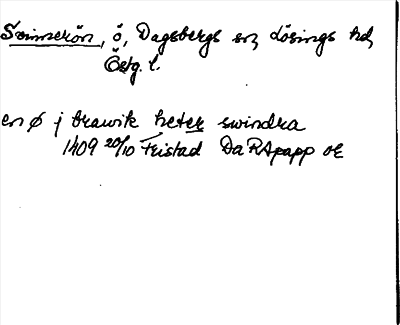 Svinnerön, ö, Dagsbergs sn, Lösings hd,
Östg. l.
en ø j brawik heter swindra
1409 20/10 Fristad DaRApapp or